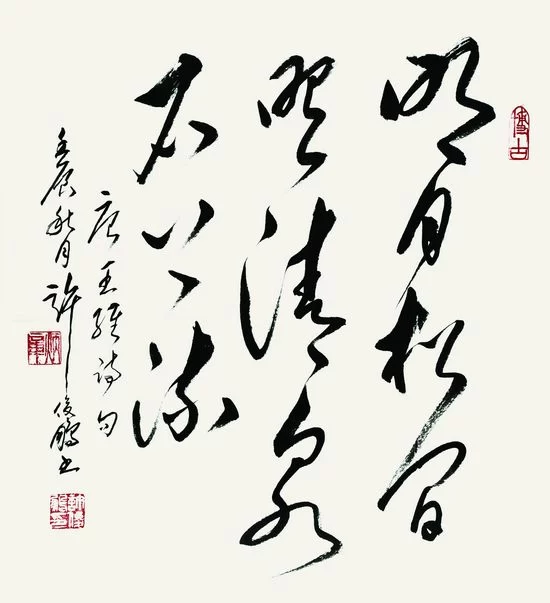 明月松间
照清泉
石上流
唐王维诗句
壬辰秋月許俊鵬书